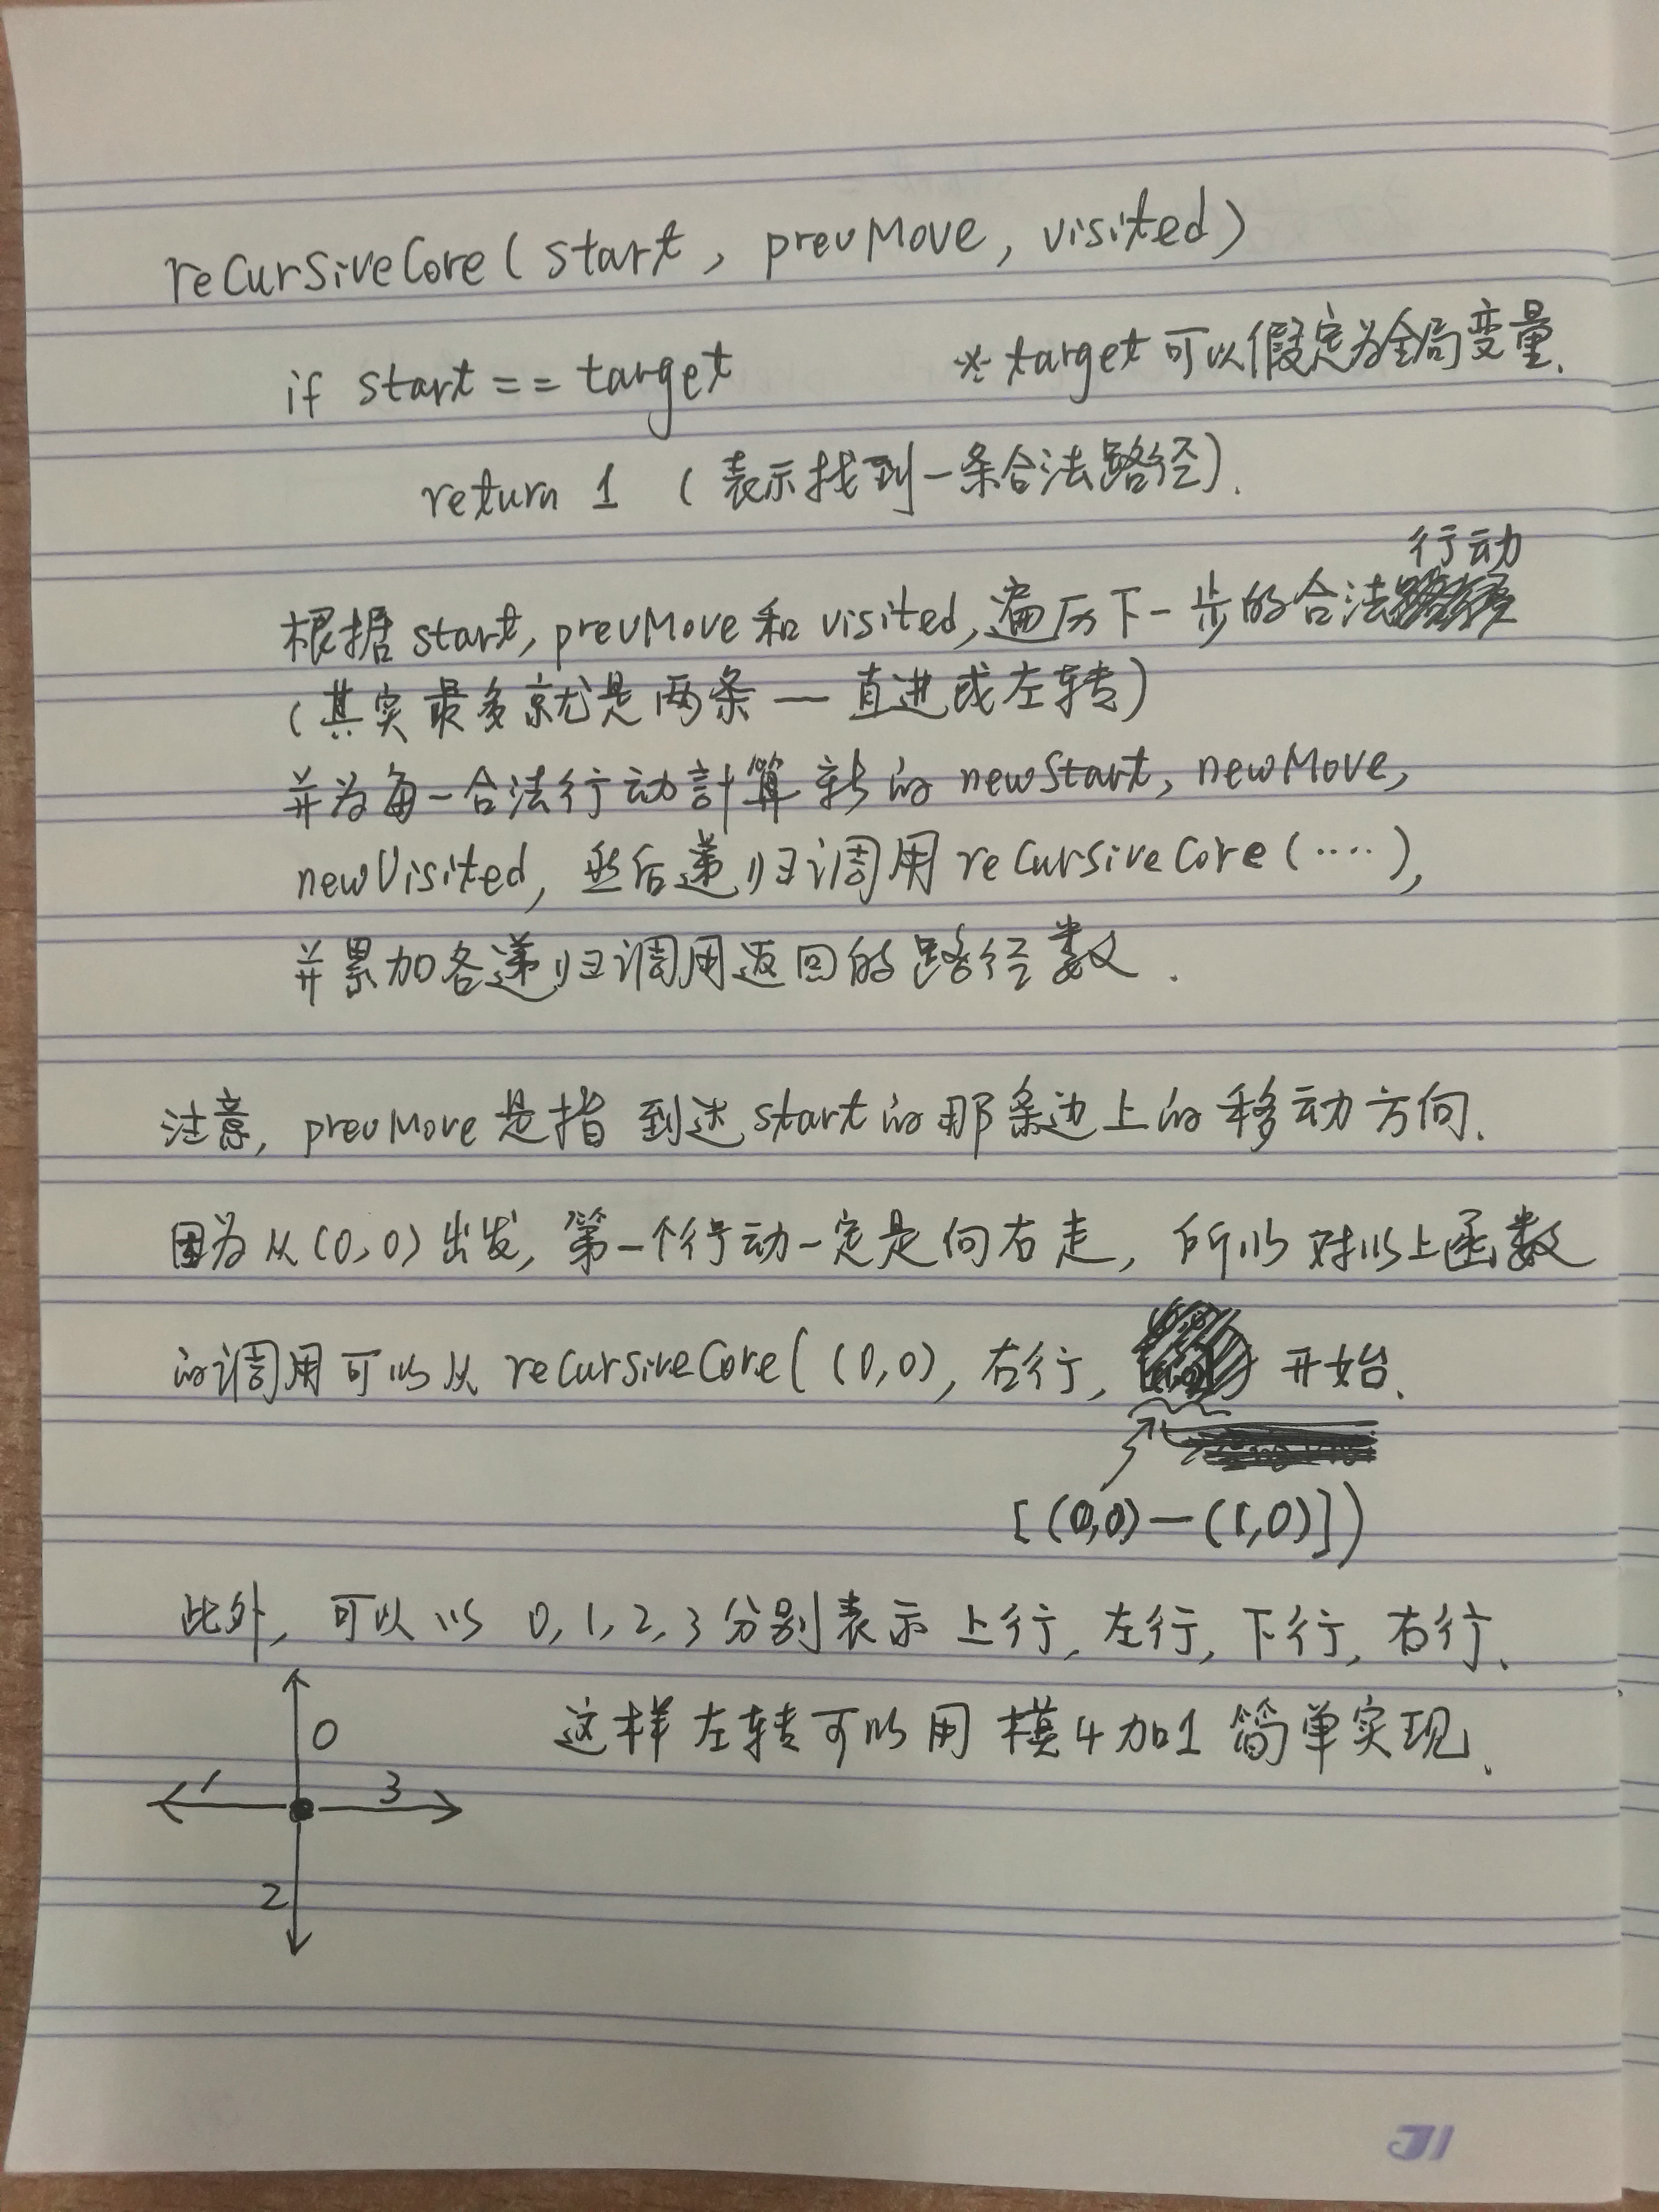 recursiveCore( start, prevMove, visited)
if start == target ※ target 可以假定为全局变量.
return 1 (表示找到一条合法路径).
行动
根据 start, prevMove 和 visited, 遍历下一步的合法
(其实最多就是两条 — 直进或左转)
并为每一合法行动計算新的 newStart, newMove,
newVisited, 然后递归调用 recursiveCore(····),
并累加各递归调用返回的路径数.
注意, prevMove 是指到达 start 的那条边上的移动方向.
因为从(0,0)出发, 第一个行动一定是向右走, 所以对以上函数
的调用可以从 recursiveCore( (0,0), 右行, 开始.
[(0,0)—(1,0)])
此外, 可以以 0, 1, 2, 3 分别表示 上行, 左行, 下行, 右行.
这样左转可以用 模4加1 简单实现.
0
1 3
2